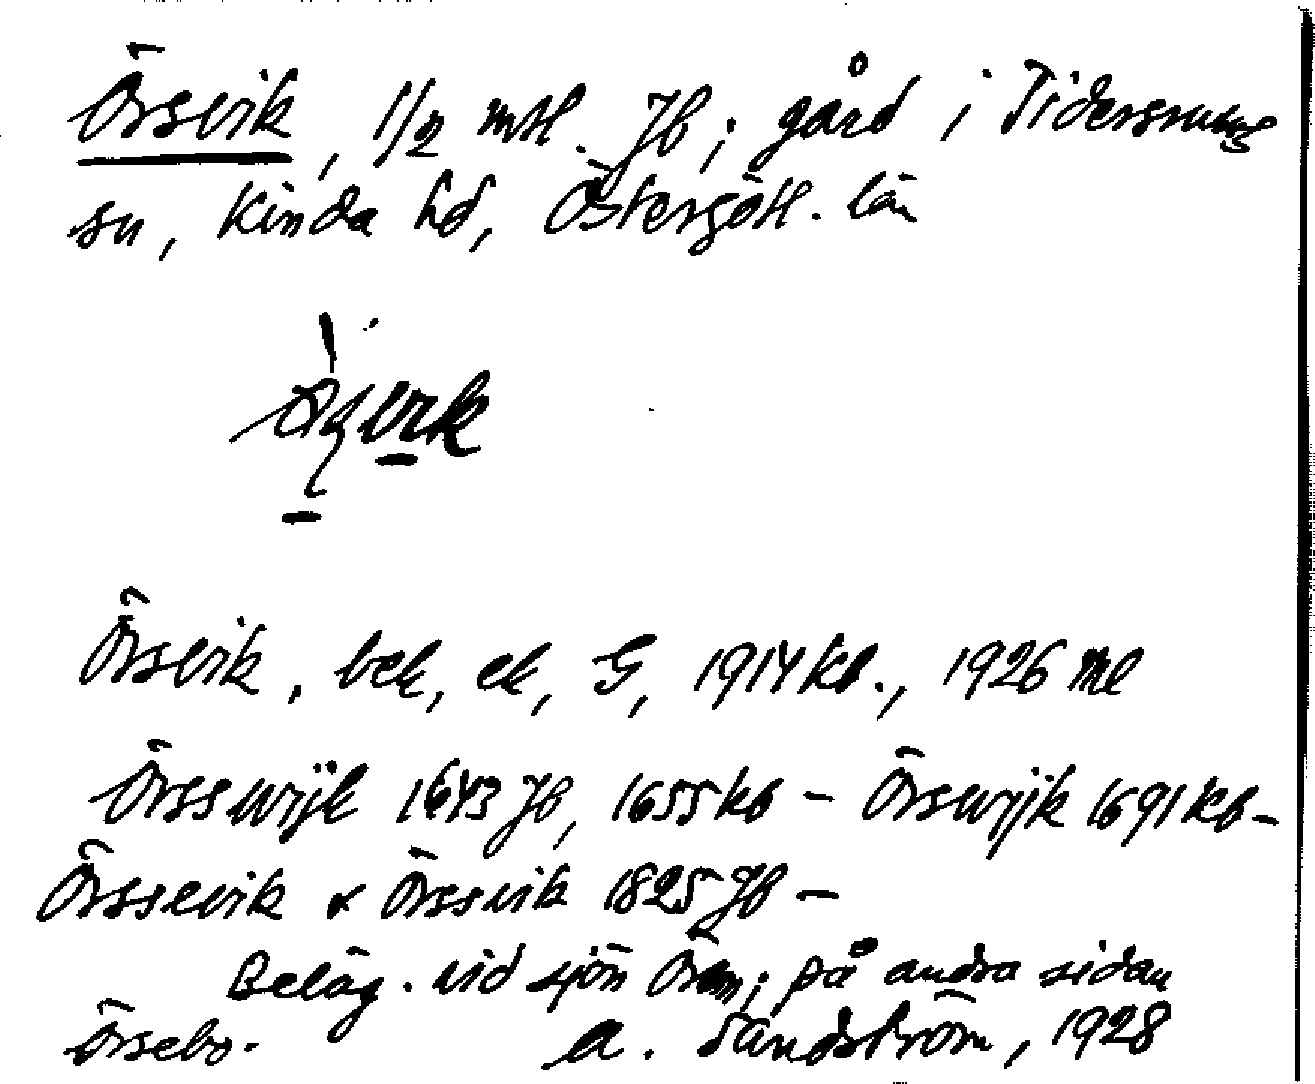 Örsvik, 1/2 mtl. Jb; gård i Tidersrums
sn, Kinda hd, Östergötl. län
Örsvik, bek, ek, G, 1914 kb., 1926 ml
Örsswijk 1643 Jb, 1655 kb – Örswijk 1691 kb –
Örssevik & Örssvik 1825 Jb –
Beläg. vid sjön Ören; på andra sidan
Örsebo. A. Sandström, 1928